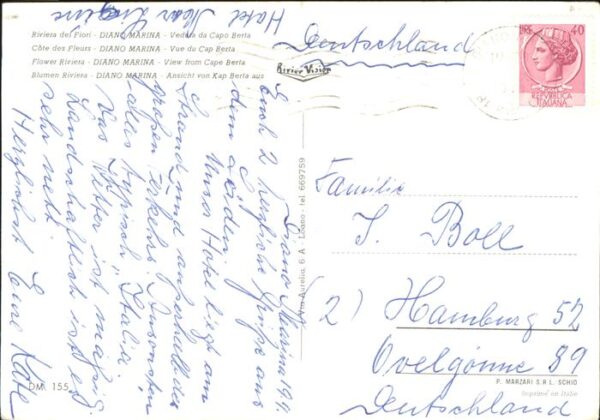 Hotel Mar Ligure
Riviera dei Fiori - DIANO MARINA - Veduta da Capo Berta
Côte des Fleurs - DIANO MARINA - Vue du Cap Berta
Flower Riviera - DIANO MARINA - View from Cape Berta
Blumen Riviera - DIANO MARINA - Ansicht von Kap Berta aus
Diano Marina
Euch 2 herzliche Grüße aus
dem Süden.
Unser Hotel liegt am
Strand und
großen Ansonsten
alles typisch "Italia".
Das Wetter ist mäßig,
Landschaftlich ist es
sehr nett
Herzlichst Eure
DM. 155
Rivier Vision
Via Aurelia, 6 A - Loano - tel. 669759
Deutschland
LIRE 40
REPUBBLICA
ITALIANA
Familie
J. Boll
(2) Hamburg 52
Övelgönne 89
Deutschland
P. MARZARI S.R.L. SCHIO
Imprimé en Italie